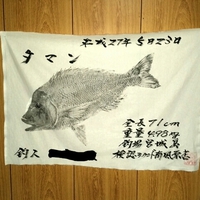 平成27年5月23日
タマン
全長71cm
重量4.98kg
釣場宮城島
釣人
検認